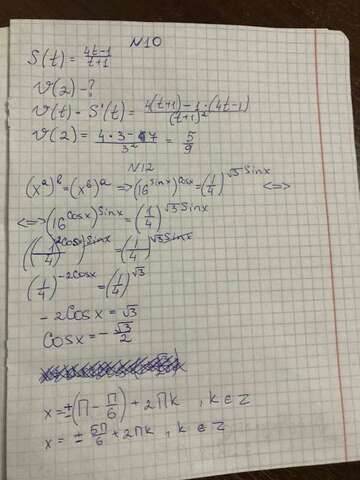 N10
S(t) = (4t-1)/(t+1)
V(2) - ?
V(t) = S'(t) = (4(t+1) - 1·(4t-1))/(t+1)²
V(2) = (4·3-7)/3² = 5/9
N12
(xᵃ)ᵇ = (xᵇ)ᵃ => (16^sinx)^cosx = (1/4)^(√3 sinx) <=>
<=> (16^cosx)^sinx = (1/4)^(√3 sinx)
((1/4)^(-2cosx))^sinx = (1/4)^(√3 sinx)
(1/4)^(-2cosx) = (1/4)^√3
-2cosx = √3
cosx = -√3/2
x = ±(π - π/6) + 2πk , k ∈ Z
x = ± 5π/6 + 2πk , k ∈ Z